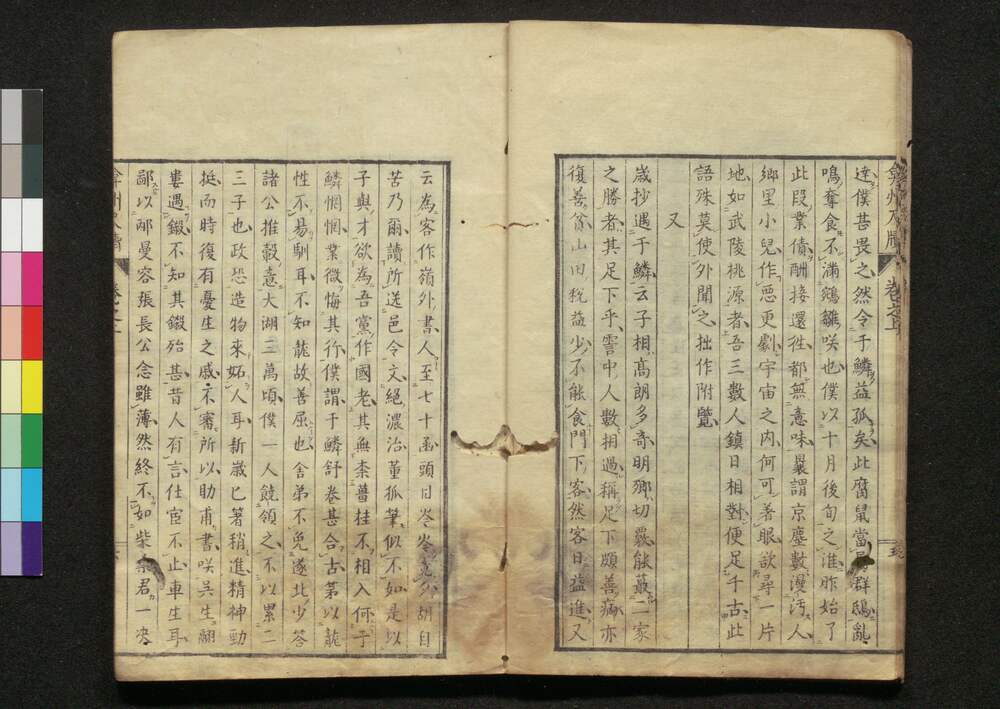 達僕甚畏之然令于鱗益孤矣此腐鼠當群鴟亂
鳴奪食不滿鵷雛咲也僕以十月後旬之淮昨始了
此段業債酬接還徃都無意味曩謂京塵數漫汚人
鄉里小兒作惡更劇宇宙之内何可著眼欲尋一片
地如武陵桃源者吾三數人鎮日相對便足千古此
語殊莫使外聞之拙作附覽
又
歲抄遇于鱗云子相高朗多奇明卿切覈能蕞二家
之勝者其足下乎霅中人數相過稱足下頗善病亦
復善貧山田稅益少不能食門下客然客日益進又
云為客作嶺外書人至七十函頭目岑岑胡自
苦乃爾讀所送邑令文絕濃治董狐筆似不如是以
子與才欲為吾黨作國老其無柰薑桂不相入何于
鱗惘惘業微悔其行僕謂于鱗舒卷甚合古第以龍
性不易馴耳不知龍故善屈也舍弟不免遂北少答
諸公推轂意大湖三萬頃僕一人饒領之不以累二
三子也政恐造物來妬人耳新歲已著稍進精神動
挺而時復有憂生之戚不審所以助甫書咲吳生翩
婁遇錣不知其錣殆甚昔人有言仕宦不止車生耳
鄙以邴曼容張長公念雖薄然終不如柴桑君一决
弇州尺牘
卷之上